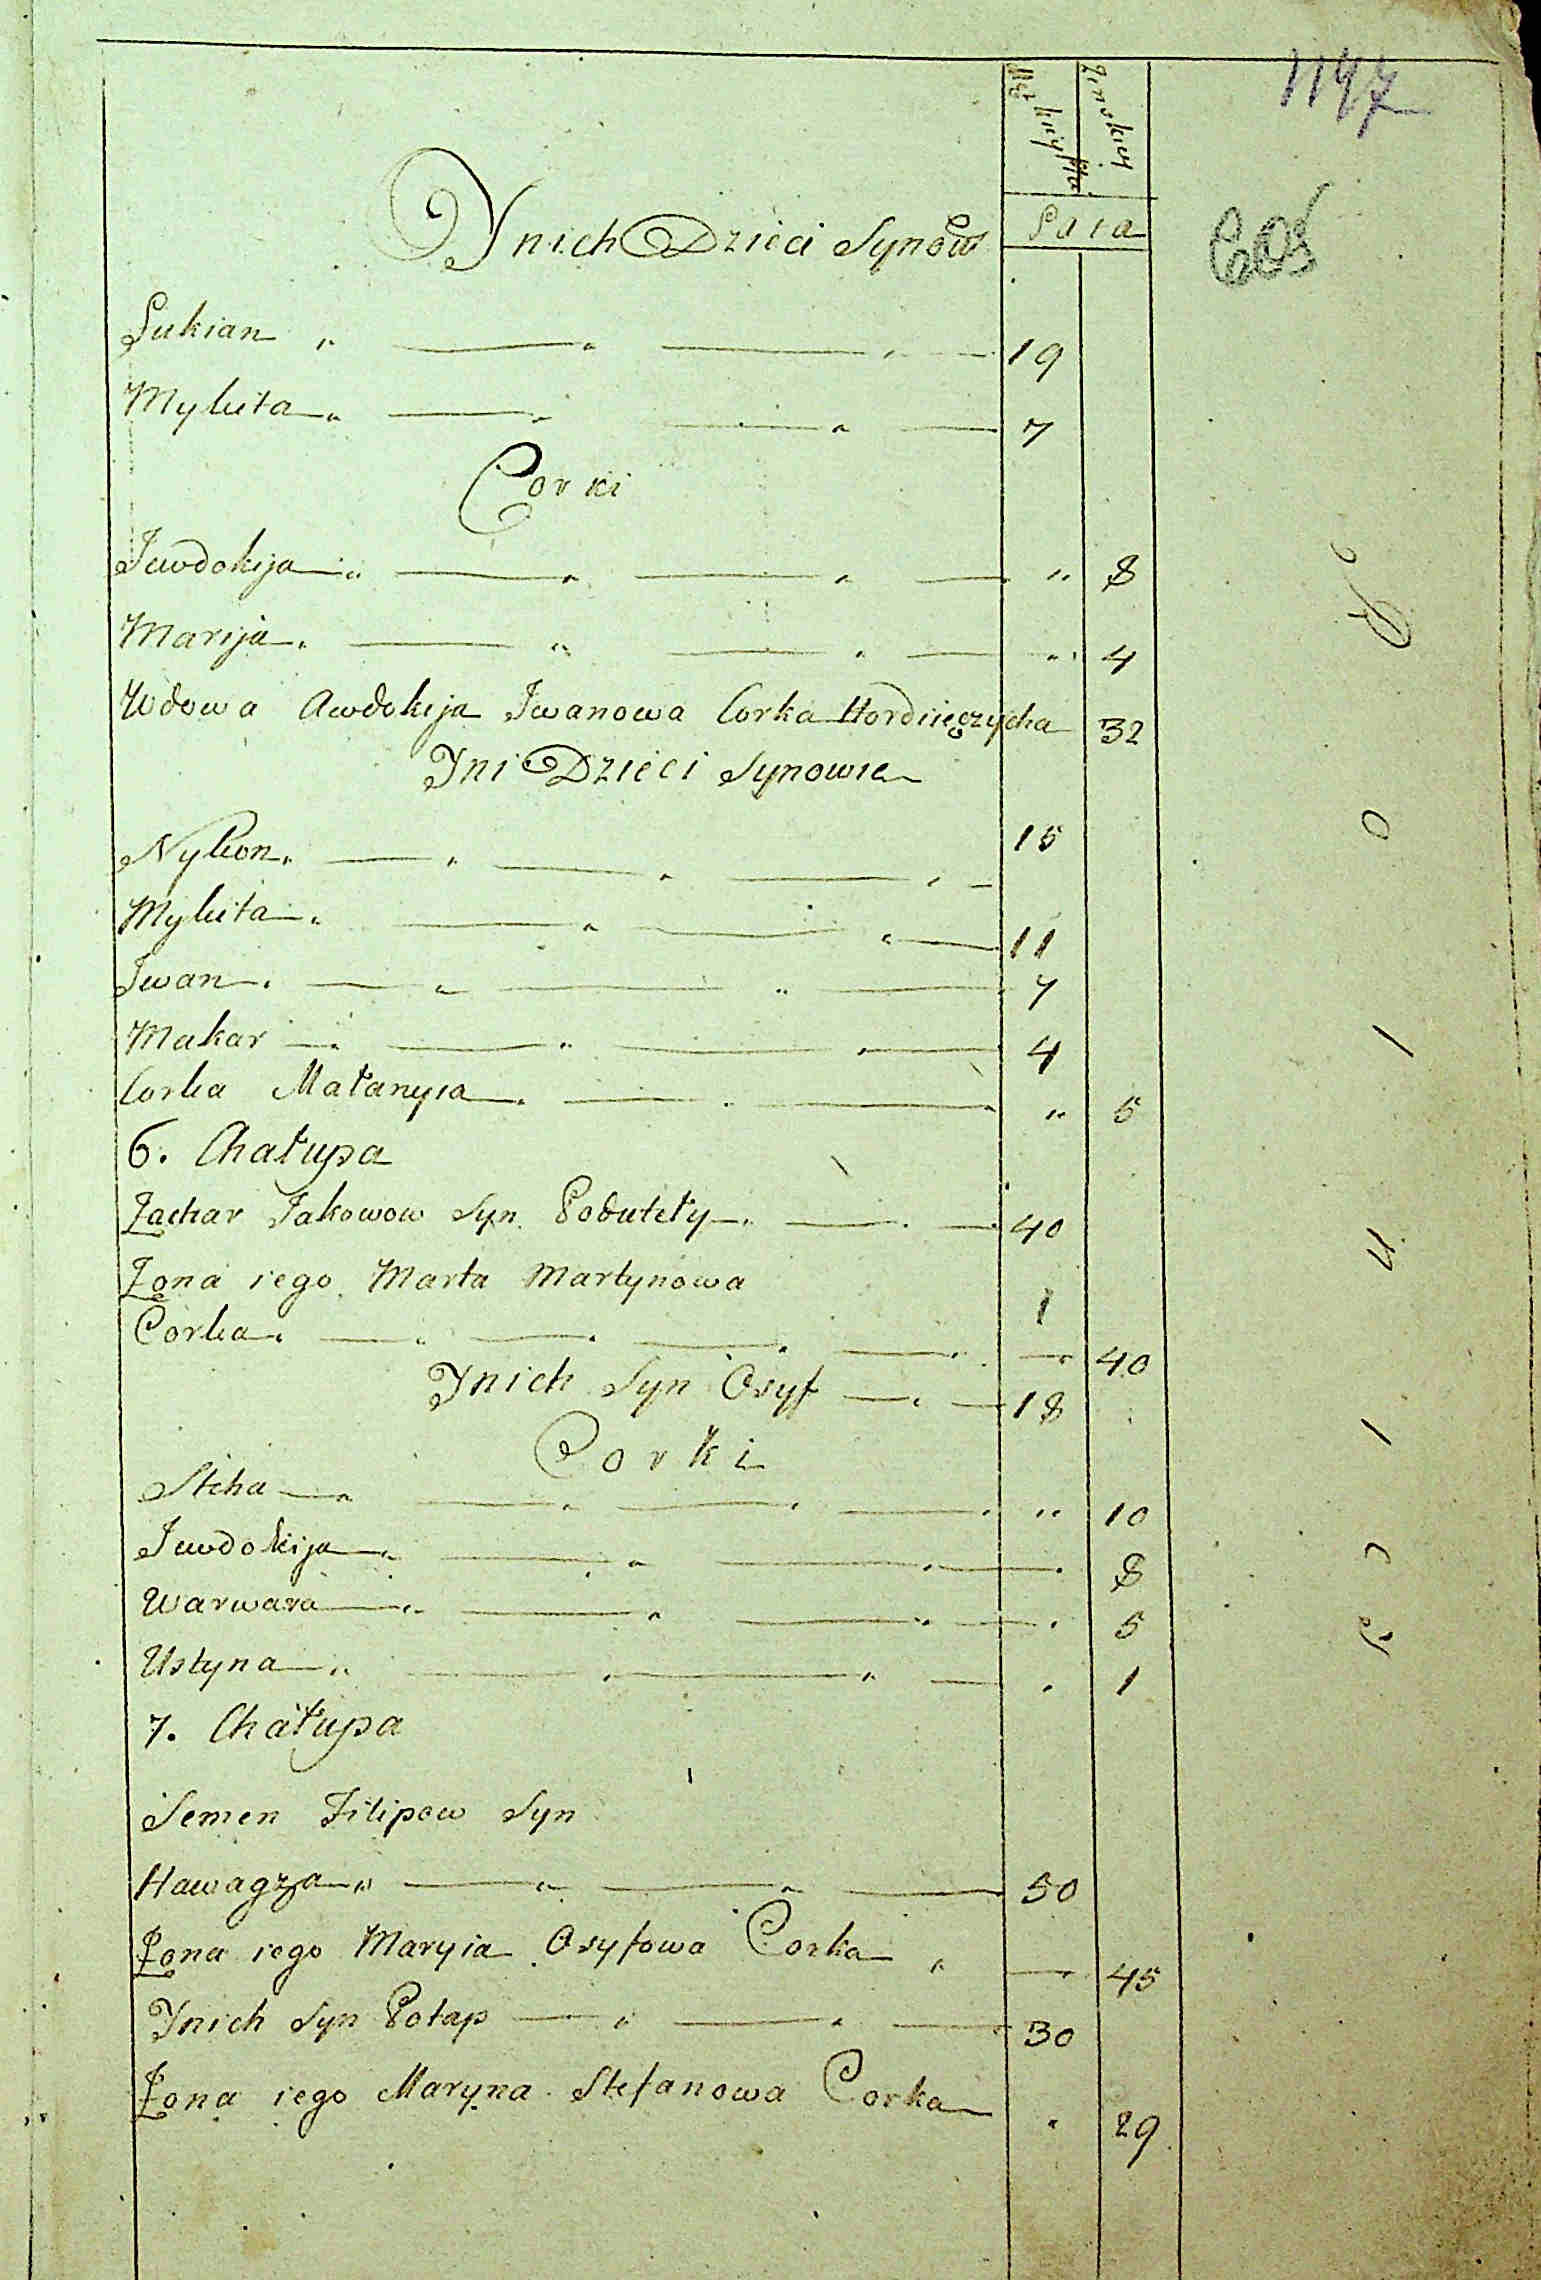 1197
Męzkiey Płci
Żenskiey
Lata
Y nich Dzieci Synow
Łukian 19
Mykita 7
Corki
Jewdokija 8
Marija 4
Wdowa Awdokija Iwanowa Corka 32
Y ni Dzieci Synowie
Nykon 15
Mykita 11
Iwan 7
Makar 4
Corka Małanyia 5
6. Chałupa
Zachar Jakowow Syn 40
Żona iego Marta Martynowa 1
Corka 40
Y nich Syn Osyf 18
Corki
Steha 10
Jewdokija 8
Warwara 5
Ustyna 1
7. Chałupa
Semen Filipow Syn
50
Żona iego Maryia Osyfowa Corka 45
Y nich Syn Potap 30
Żona iego Maryna Stefanowa Corka 29